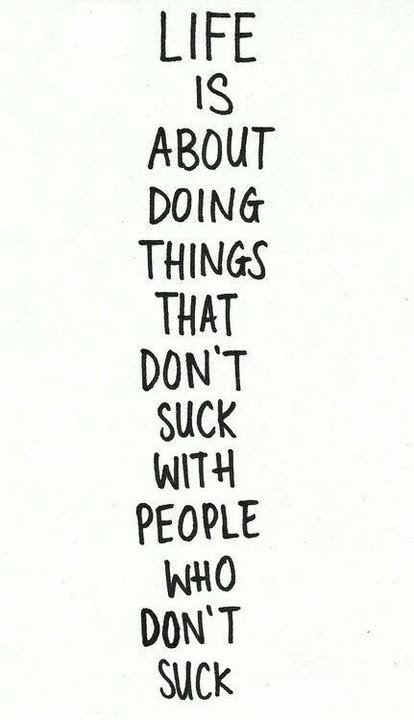 LIFE
IS
ABOUT
DOING
THINGS
THAT
DON'T
SUCK
WITH
PEOPLE
WHO
DON'T
SUCK